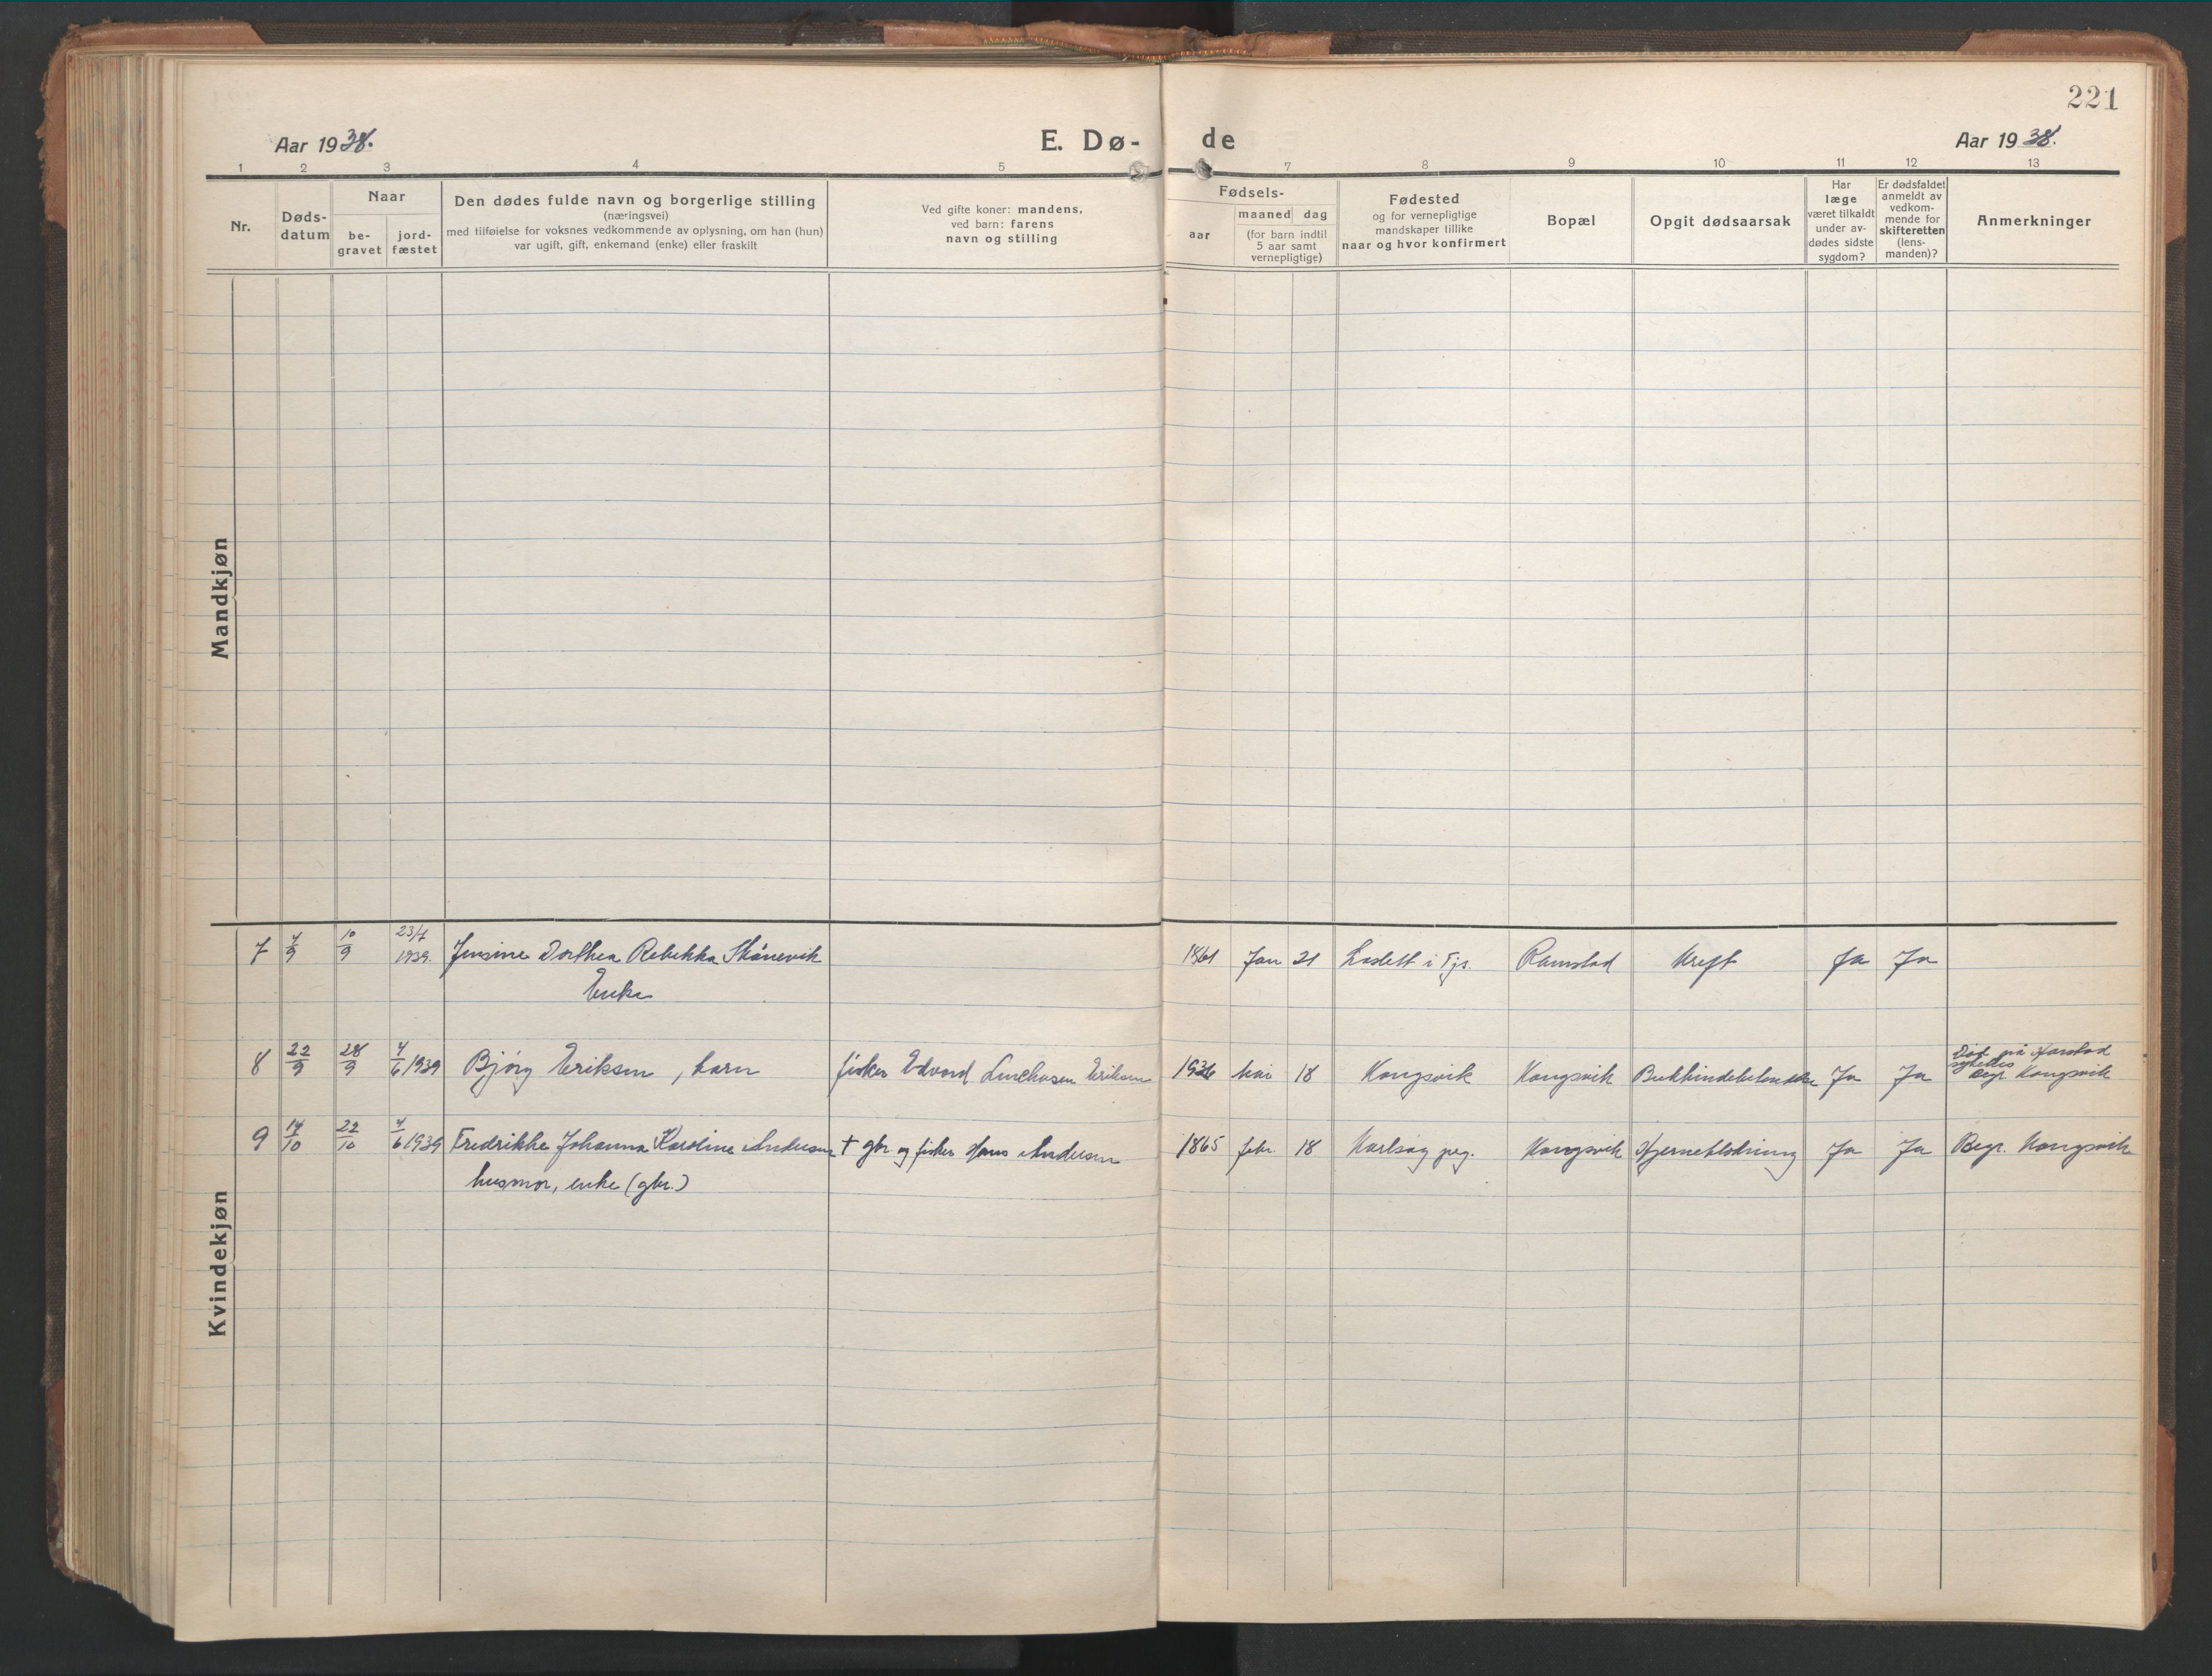 221
Aar 1938.
E. Dø-
de
Aar 1938.
1 2 3 4 5 7 8 9 10 11 12 13
Nr.
Døds-
datum
Naar
be-
gravet
jord-
fæstet
Den dødes fulde navn og borgerlige stilling
(næringsvei)
med tilføielse for voksnes vedkommende av oplysning, om han (hun)
var ugift, gift, enkemand (enke) eller fraskilt
Ved gifte koner: mandens,
ved barn: farens
navn og stilling
Fødsels-
aar
maaned dag
(for barn indtil
5 aar samt
vernepligtige)
Fødested
og for vernepligtige
mandskaper tillike
naar og hvor konfirmert
Bopæl
Opgit dødsaarsak
Har
læge
været tilkaldt
under av-
dødes sidste
sygdom?
Er dødsfaldet
anmeldt av
vedkom-
mende for
skifteretten
(lens-
manden)?
Anmerkninger
Mandkjøn
Kvindekjøn
7 4/9 10/9 23/7 1939. Jensine Dorthea Rebekka Skånevik 1861 Jan 21 Laslett i Tjs. Ramstad Kreft Ja Ja
Enke
8 22/9 28/9 4/6 1939 Bjørg Eriksen, barn fisker Edvard Eriksen 1936 mai 18 Kongsvik Kongsvik Ja Ja Død på Harstad
sykehus
Begr. Kongsvik
9 14/10 22/10 4/6 1939 Fredrikke Johanna Karoline Andersen † gbr. og fisker Hans Andersen 1865 febr. 18 Karlsøy prg. Kongsvik Hjerneblødning Ja Ja Begr. Kongsvik
husmor, enke (gbr.)